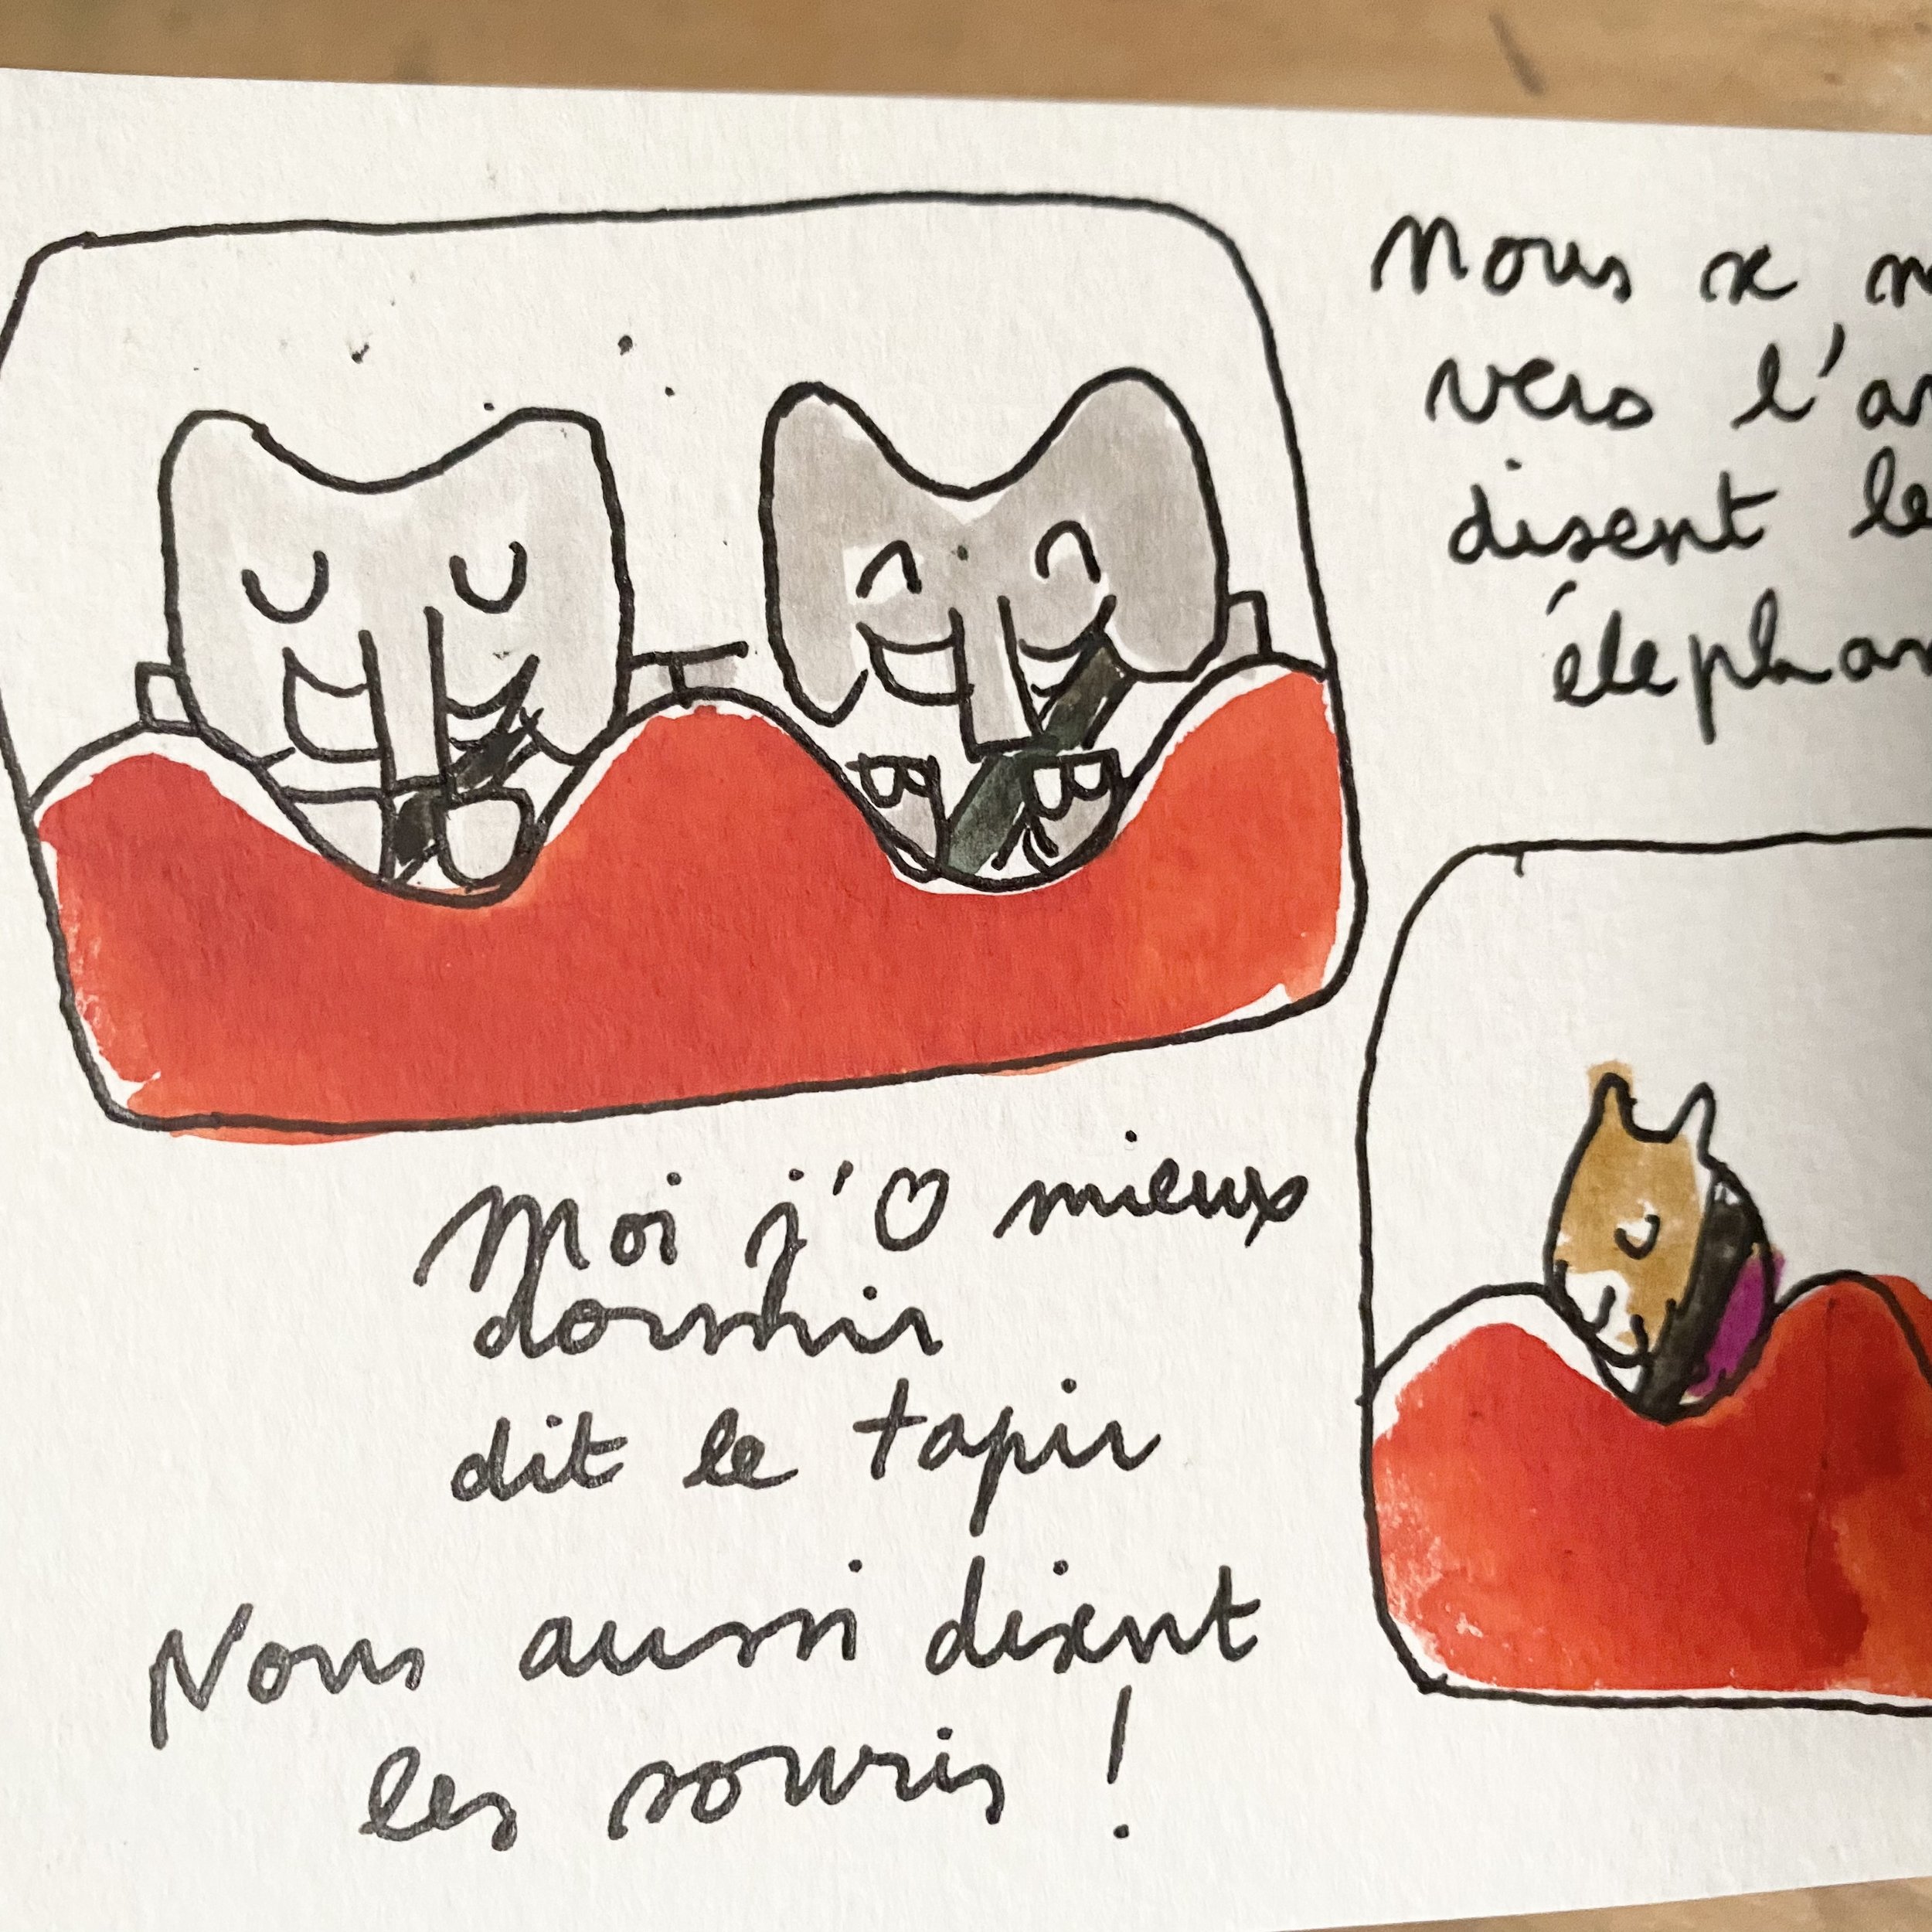 Nous se
vers l'
disent
Moi j'♡ mieux
dormir
dit le tapir
Nous aussi disent
les souris !